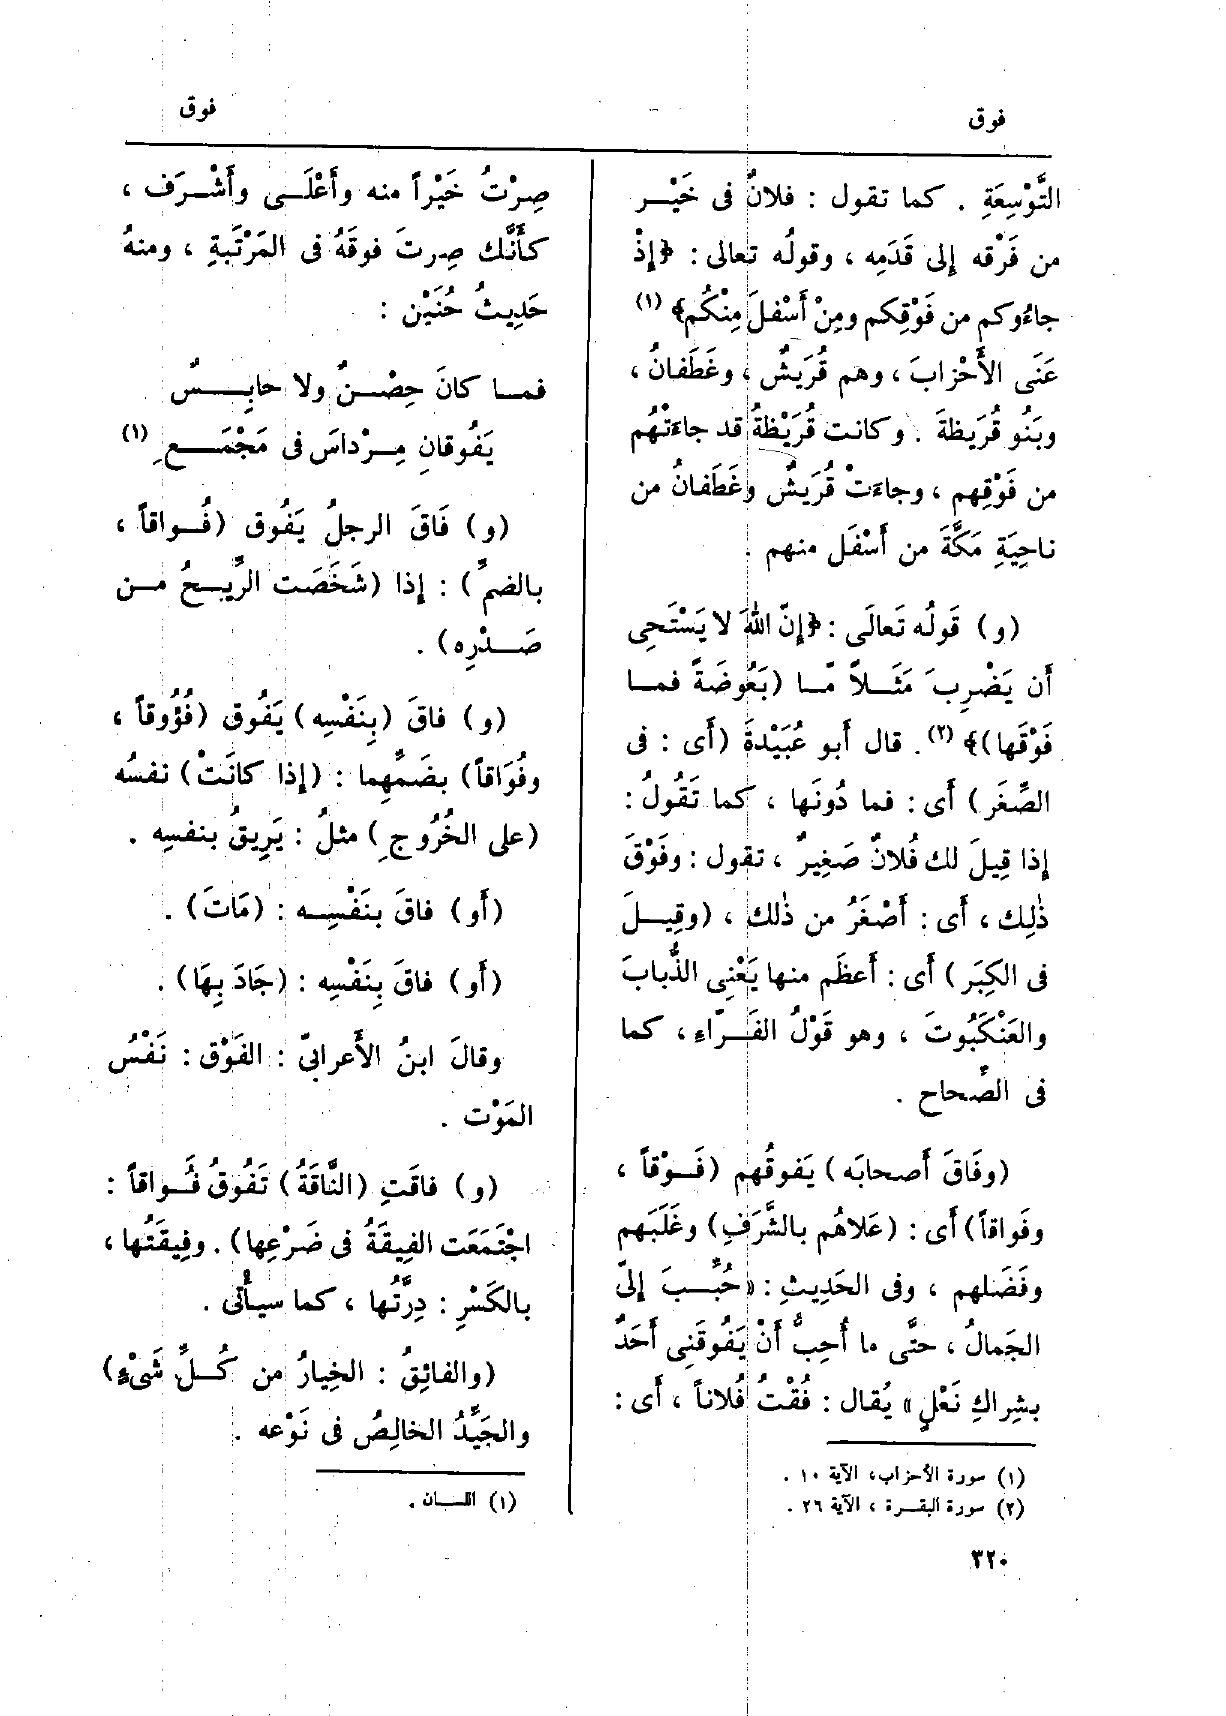 فوق
فوق
التَّوْسِعَةِ . كما تقول : فلانٌ فى خَيْــر
من فَرْقه إلى قَدَمِه ، وقولُه تعالى : ﴿إِذْ
جاءُوكم من فَوْقِكم ومِنْ أَسْفلَ مِنْكُم﴾ (١)
عَنَى الأَحْزابَ ، وهم قُرَيشٌ ، وغَطَفانُ ،
وبَنُو قُرَيظةَ . وكانت قُرَيْظةُ قد جاءَتْهُم
من فَوْقِهم ، وجاءَتْ قُرَيشٌ وغَطَفانُ من
ناحِيَةِ مَكَّةَ من أَسْفَل منهم .
(و) قَولُه تَعالَى : ﴿إِنّ اللهَ لا يَسْتَحِى
أَن يَضْرِبَ مَثَــلاً مّــا (بَعُوضَةً فمــا
فَوْقَها)﴾ (٢) . قال أَبو عُبَيْدةَ (أَى : فى
الصِّغَر) أَى : فما دُونَها ، كما تَقُولُ :
إذا قِيلَ لك فُلانٌ صَغِيرٌ ، تقول : وفَوْقَ
ذٰلِك ، أَى : أَصْغَرُ من ذٰلك ، (وقِيــلَ
فى الكِبَر) أَى : أَعظَم منها يَعْنِى الذُّبابَ
والعَنْكَبُوتَ ، وهو قَوْلُ الفَــرّاءِ ، كما
فى الصِّحاح .
(وفَاقَ أَصحابَه) يَفوقُهم (فَــوْقاً ،
وفَواقاً) أَى : (عَلاهُم بالشَّرَفِ) وغَلَبَهم
وفَضَلهم ، وفى الحَدِيثِ : «حُبِّــبَ إِلىّ
الجَمالُ ، حتَّى ما أُحِبُّ أَنْ يَفُوقَنِى أَحَدٌ
بشِراكِ نَعْلٍ» يُقال : فُقْتُ فُلاناً ، أَى :
(١) سورة الأحزاب، الآية ١٠ .
(٢) سورة البقــرة ، الآية ٢٦ .
٣٢٠
صِرْتُ خَيْراً منه وأَعْلَــى وأَشْــرَف ،
كأَنَّك صِرتَ فوقَهُ فى المَرْتَبةِ ، ومنهُ
حَدِيثُ حُنَيْن :
فمــا كانَ حِصْــنٌ ولا حابِــسٌ
يَفُوقانِ مِــرْداسَ فى مَجْمَــعِ (١)
(و) فَاقَ الرجلُ يَفُوق (فُــواقاً ،
بالضمِّ) : إِذا (شَخَصَت الرِّيــحُ مــن
صَــدْرِه) .
(و) فاقَ (بِنَفْسِه) يَفُوق (فُؤُوقاً ،
وفُوَاقاً) بضَمِّهِما : (إِذا كانَتْ) نفسُه
(على الخُرُوجِ) مثلُ : يَرِيقُ بنفسِه .
(أَو) فاقَ بنَفْسِــه : (مَاتَ) .
(أَو) فاقَ بِنَفْسِه : (جَادَ بِهَا) .
وقالَ ابنُ الأَعرابىّ : الفَوْق : نَفْسُ
المَوْت .
(و) فاقَتِ (النَّاقَةُ) تَفُوقُ فُــواقاً :
اجْتَمَعَت الفِيقَةُ فى ضَرْعِها) . وفِيقَتُها ،
بالكَسْرِ : دِرَّتُها ، كما سيأْتى .
(والفائِقُ : الخِيارُ من كُــلِّ شَىْءٍ)
والجَيِّدُ الخالِصُ فى نَوْعه .
(١) اللســان .